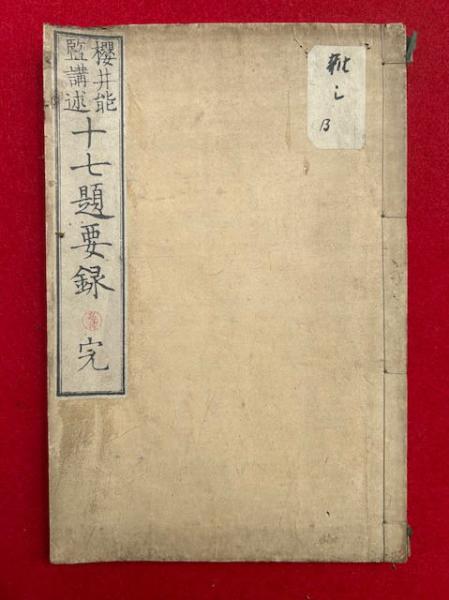 櫻井能
監講述
十七題要録
完
B